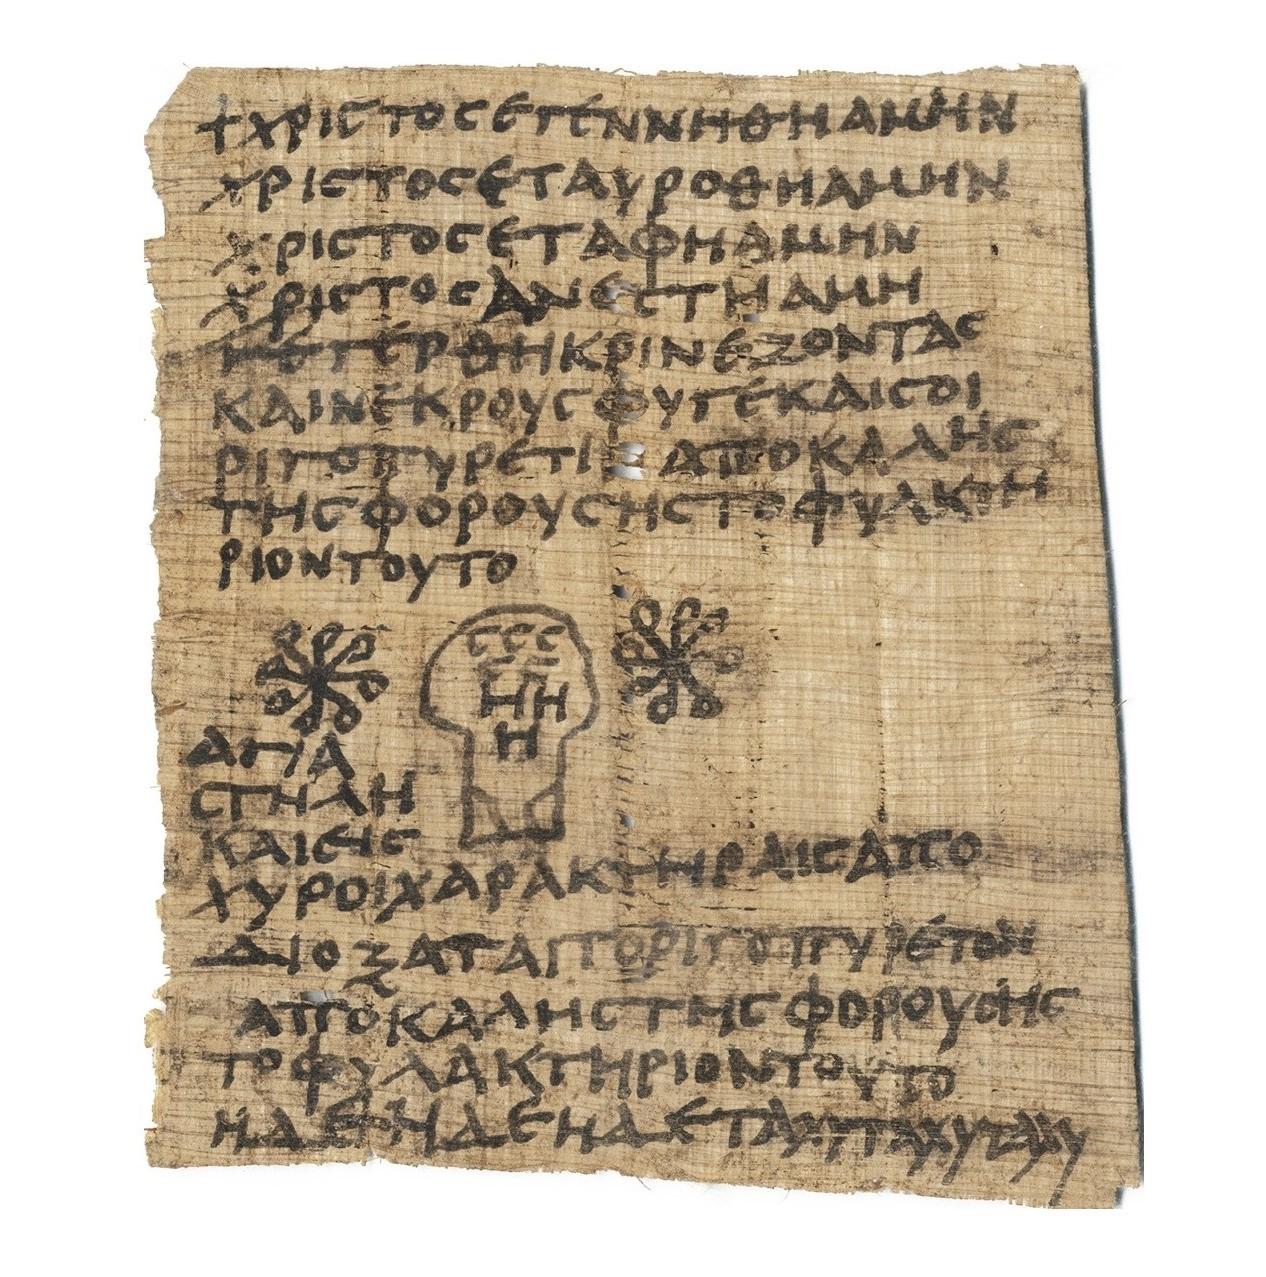 † ΧΡΙϹΤΟϹΕΓΕΝΝΗΘΗΑΜΗΝ
ΧΡΙϹΤΟϹΕϹΤΑΥΡΟΘΗΑΜΗΝ
ΧΡΙϹΤΟϹΕΤΑΦΗΑΜΗΝ
ΧΡΙϹΤΟϹΑΝΕϹΤΗΑΜΗ
ΓΕΓΕΡΘΗΚΡΙΝΕΖΟΝΤΑϹ
ΚΑΙΝΕΚΡΟΥϹΦΥΓΕΚΑΙϹΟΙ
ΡΙΓΟΠΥΡΕΤΙ ΑΠΟΚΑΛΗϹ
ΤΗϹΦΟΡΟΥϹΗϹΤΟΦΥΛΑΚΤΗ
ΡΙΟΝΤΟΥΤΟ
ϹϹϹ
ϹϹ
ΗΗ
Η
ΑΓΙΑ
ϹΤΗΛΗ
ΚΑΙΕΙϹ
ΧΥΡΟΙΧΑΡΑΚΤΗΡΑΙϹΑΠΟ
ΔΙΟΞΑΤΑΙΤΟΡΙΓΟΠΥΡΕΤΟΝ
ΑΠΟΚΑΛΗϹΤΗϹΦΟΡΟΥϹΗϹ
ΤΟΦΥΛΑΚΤΗΡΙΟΝΤΟΥΤΟ
ΗΔΕΗΔΕΗΔΕΤΑΧΥΤΑΧΥΤΑΧΥ